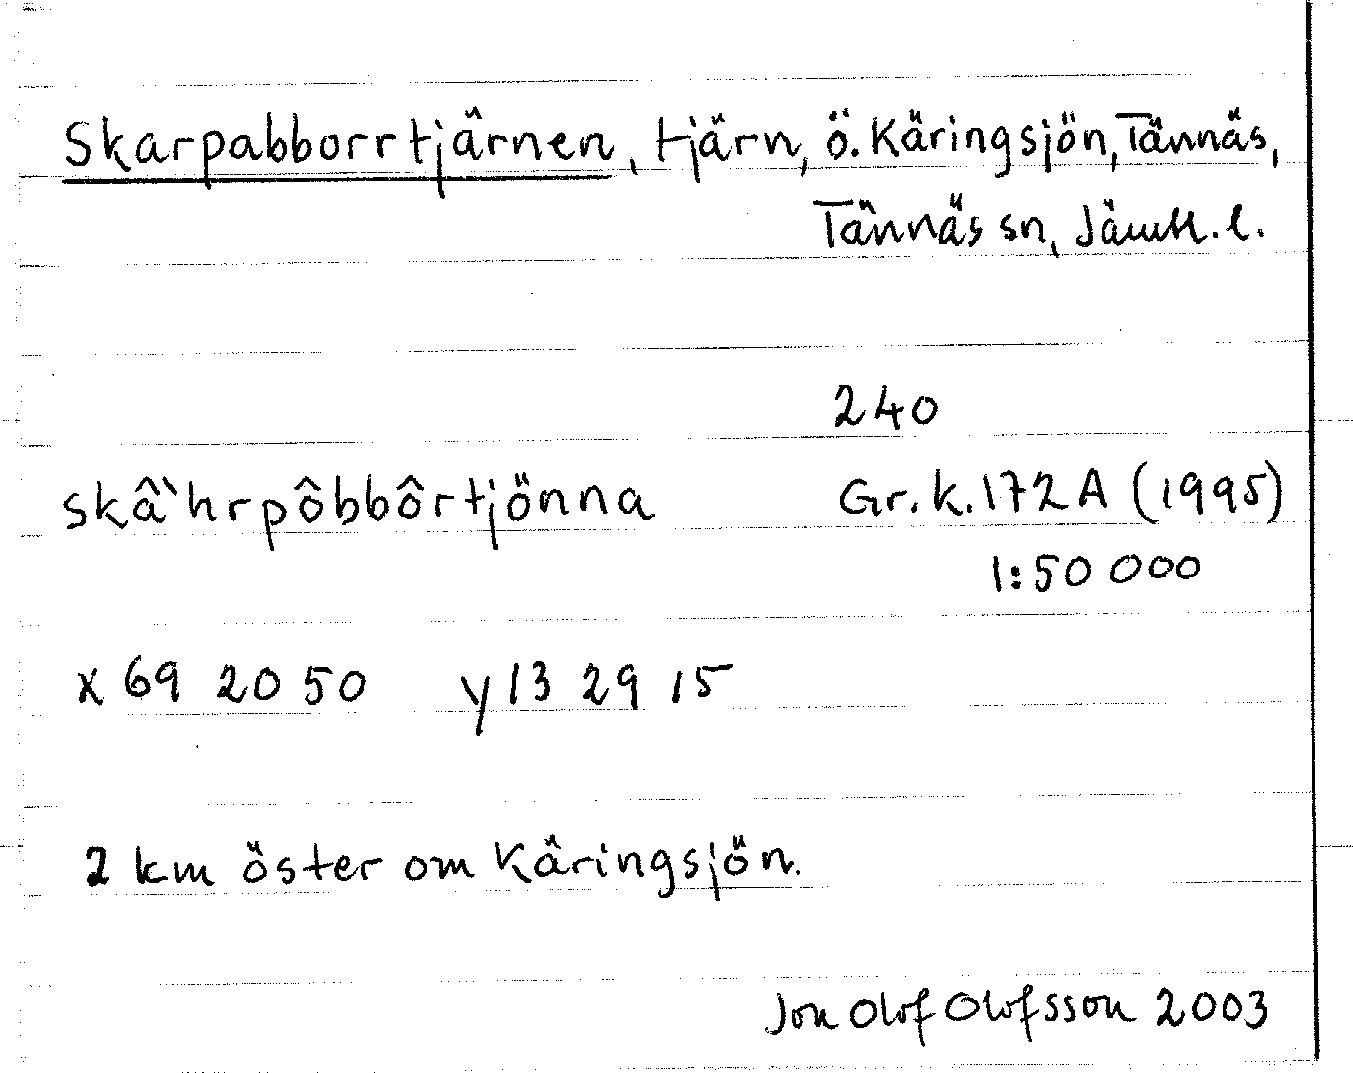 Skarpabborrtjärnen, tjärn, ö. Käringsjön, Tännäs,
Tännäs sn, Jämtl. l.
240
skâ`hrpôbbôrtjönna Gr. k. 172 A (1995)
1:50 000
x 69 20 50 y 13 29 15
2 km öster om Käringsjön.
Jon Olof Olofsson 2003